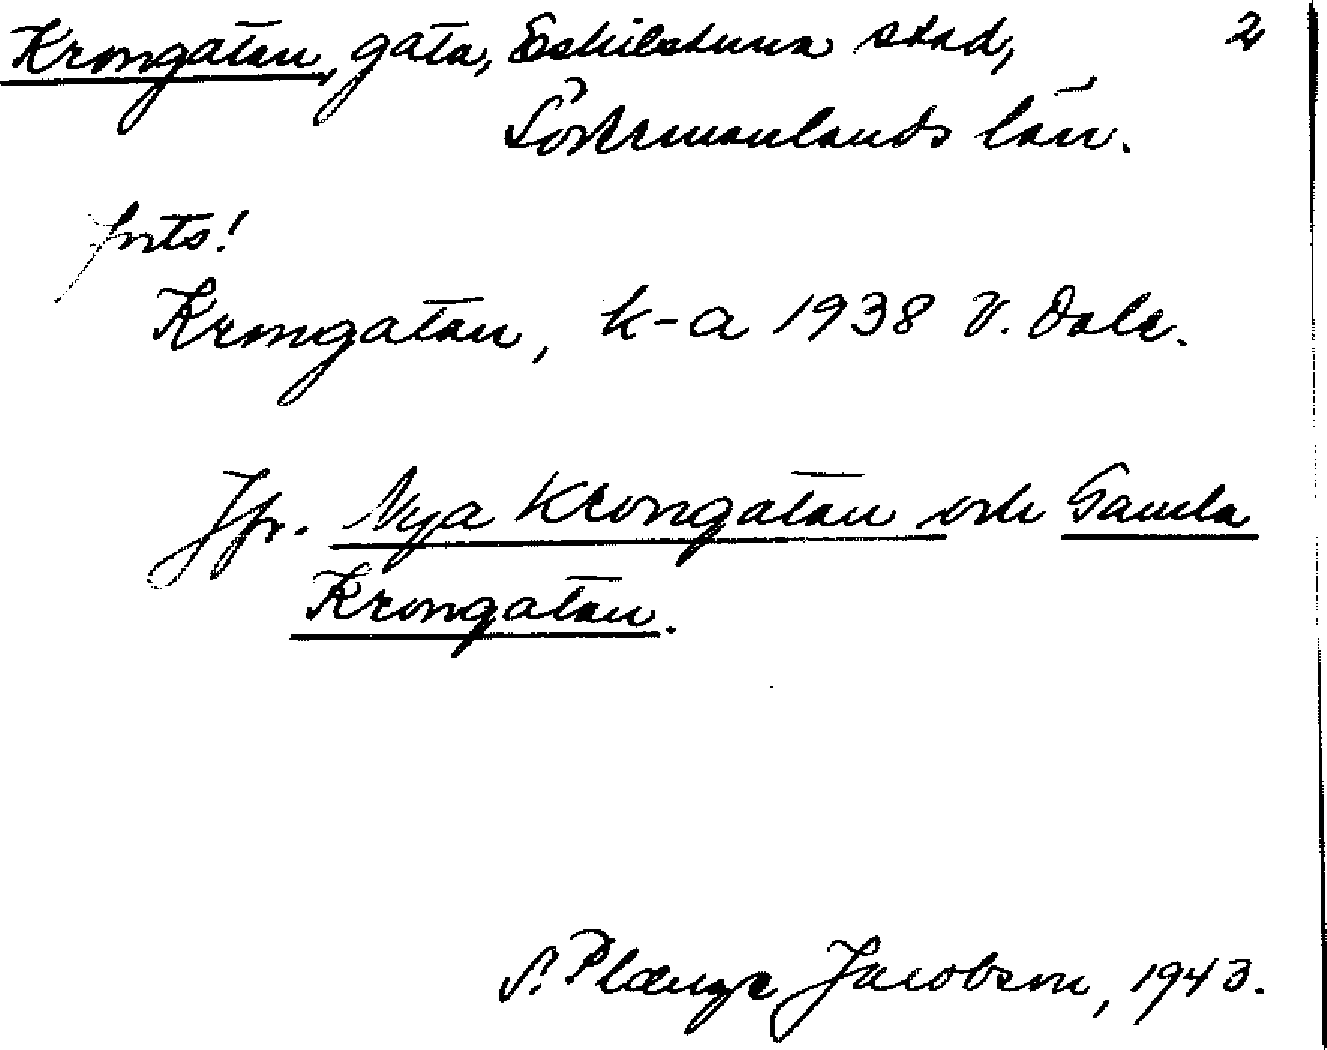 Krongatan, gata, Eskilstuna stad, 2
Södermanlands län.
forts!
Krongatan, k-a 1938 V. Dale.
Jfr. Nya Krongatan och Gamla
Krongatan.
S. Plænge Jacobson, 1943.